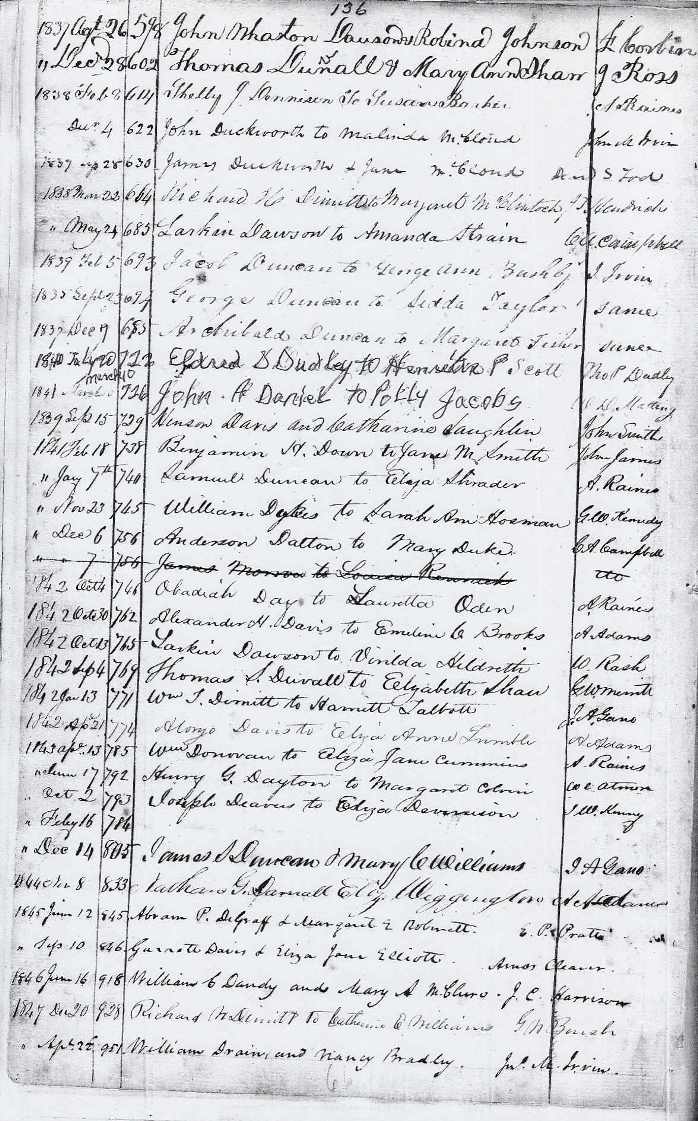 136
1837 Agt 26 598 John Whaston Lawson & Robina Johnson J Corbin
" Decr 28 602 Thomas Duvall & Mary Ann Shaw J Ross
1838 Feb 8 614 Shelby J Dennison to Susan Barker A Raines
Decr 4 622 John Duckworth to Malinda McCloud John M Irvin
1837 Sep 28 630 James Duckworth & Jane McCloud David S Tod
1838 Mar 22 664 Richard H Dimitt to Margaret McClintock J. Hendrick
" May 24 685 Larkin Dawson to Amanda Strain C A Campbell
1839 Feb 5 693 Jacob Duncan to George Ann Bushby J Irvin
1835 Sept 23 694 George Duncan to Sedda Taylor same
1837 Dec 9 685 Archibald Duncan to Margaret Fisher same
1840 July 20 722 D Dudley to Henrietta P Scott Tho P Dudley
1841 March 10 726 John A Daniel to Polly Jacobs
1839 Sep 15 729 Vinson Davis and Catharine Laughlin John Smith
1841 Feb 18 738 Benjamin H. Down to Jane M Smith John James
" Jay 7th 740 Samuel Duncan to Eliza Shrader A. Raines
" Nov 23 745 William Dykes to Sarah Ann Hosman G W Kennedy
" Dec 6 756 Anderson Dalton to Mary Duke. C A Campbell
" " 7 756 James Morrow to Louisa Rennick do
1842 Oct 4 746 Obadiah Day to Lauretta Oden A Raines
1842 Octr 30 762 Alexander H. Davis to Emiline C Brooks A Adams
1842 Oct 13 765 Larkin Dawson to Virilda Hildreth W Rash
1842 Sep 4 769 Thomas S. Duvall to Elizabeth Shaw G W Merritt
1842 Jan 13 771 Wm T. Dimitt to Harriett Talbott J. A Gano
1842 Apl 21 774 Alonzo Davis to Eliza Anne Trimble A Adams
1843 apr. 13 785 Wm Donovan to Eliza Jane Cummins A. Raines
" June 17 792 Henry G. Dayton to Margaret Colvin W C Atmon
" Oct 2 793 Joseph Deaver to Eliza Dennison
" Feby 16 784
" Dec 14 805 James S Duncan & Mary C Williams J A Gano
1844 8 833 Nathan G. Darnall Eliz. Wiggington A Adams
1845 June 12 845 Abram P. DeGraff & Margaret E Robinett. E. P. Pratt
" Sep 10 846 Garrett Davis & Eliza Jane Elliott. Amos Cleaver.
1846 June 16 918 William C Dandy and Mary A McClure. J. C. Harrison
1847 Dec 20 928 Richard H Dimitt to Catharine E Williams G W Brush
" Apl 22 951 William Drain, and Nancy Bradley. Jno. M. Irvin.